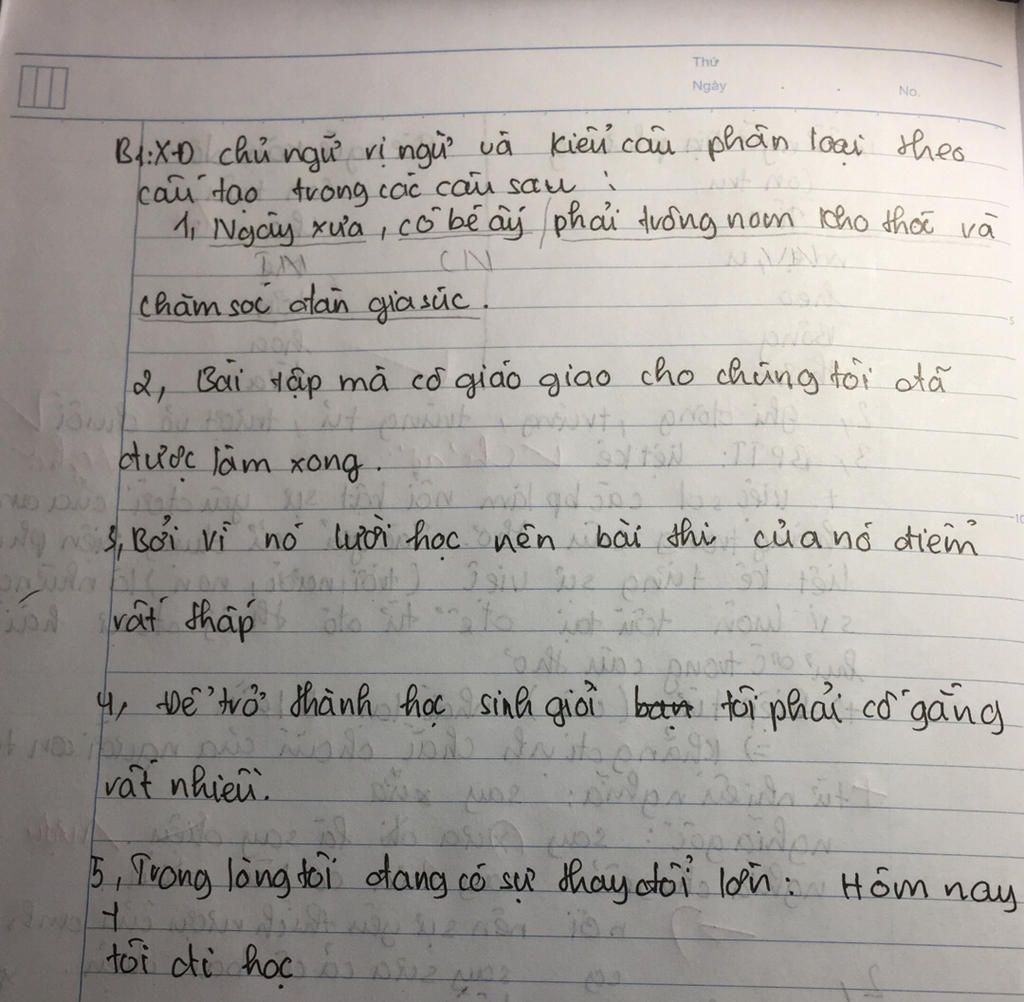 Thứ
Ngày
No.
B1: XĐ chủ ngữ vị ngữ và kiểu câu phân loại theo
cấu tạo trong các câu sau :
1, Ngày xưa, cô bé ấy / phải trông nom kho thóc và
TN CN
chăm sóc đàn gia súc.
2, Bài tập mà cô giáo giao cho chúng tôi đã
được làm xong.
3, Bởi vì nó lười học nên bài thi của nó điểm
rất thấp
4, Để trở thành học sinh giỏi bạn tôi phải cố gắng
rất nhiều.
5, Trong lòng tôi đang có sự thay đổi lớn: Hôm nay
tôi đi học